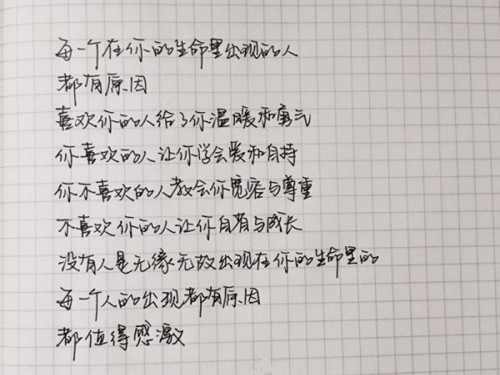 每一个在你的生命里出现的人
都有原因
喜欢你的人给了你温暖和勇气
你喜欢的人让你学会爱和自持
你不喜欢的人教会你宽容与尊重
不喜欢你的人让你自省与成长
没有人是无缘无故出现在你的生命里的
每一个人的出现都有原因
都值得感激